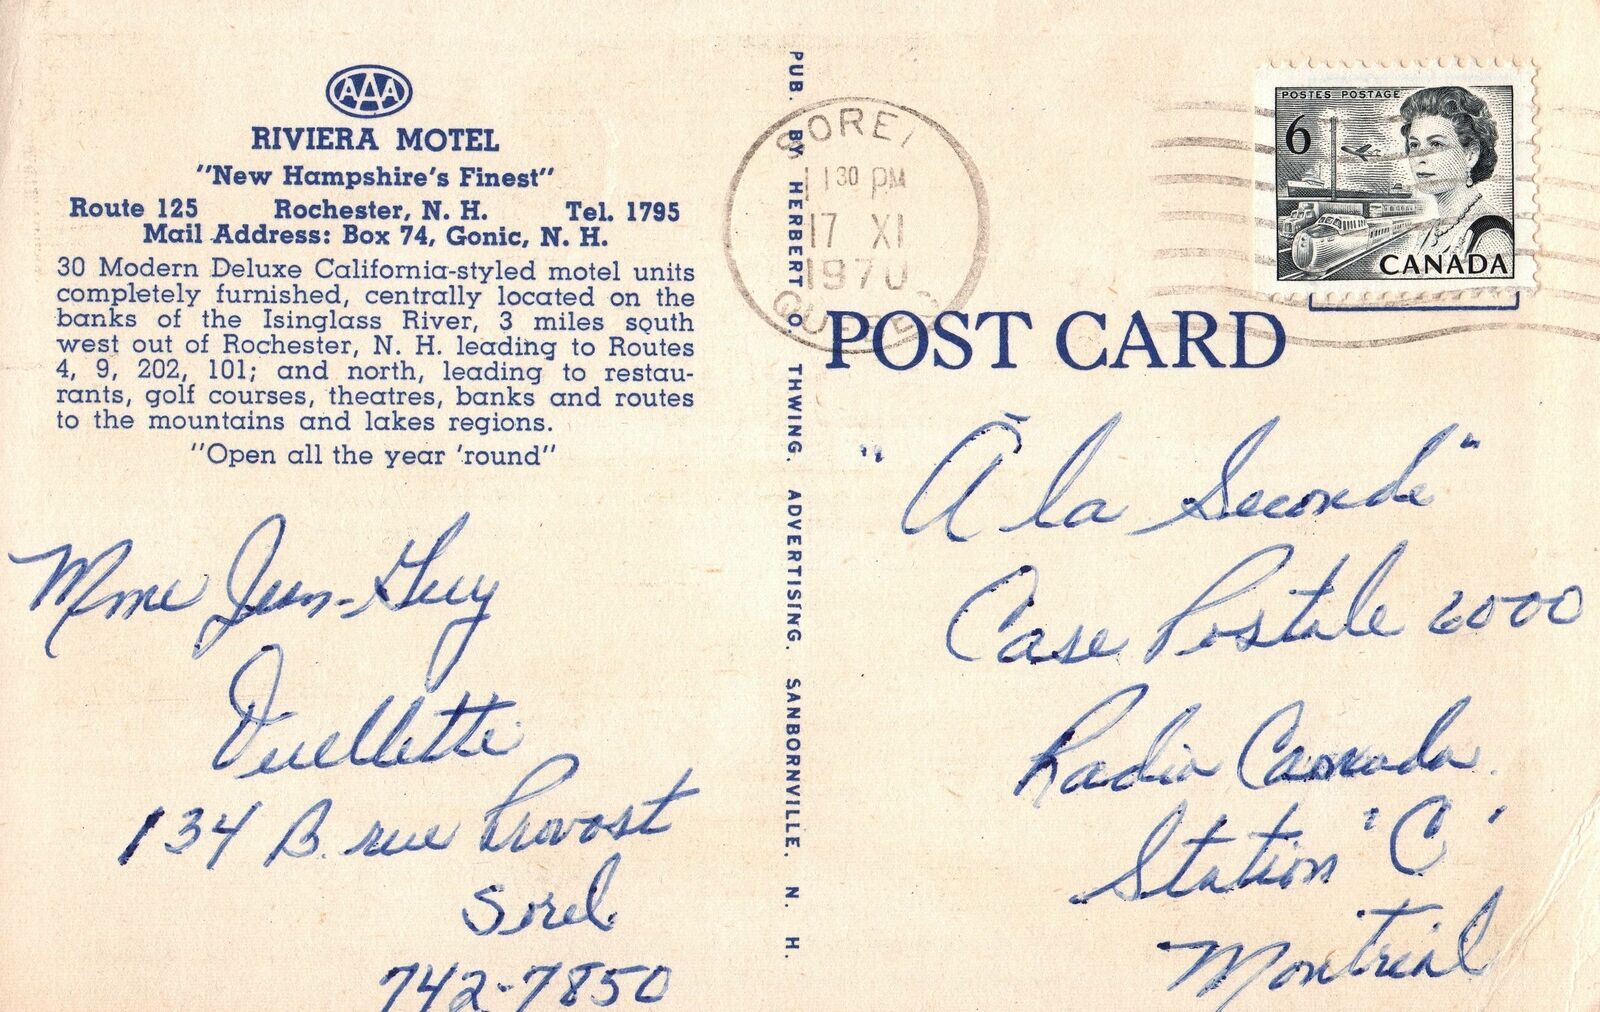 AAA
RIVIERA MOTEL
"New Hampshire's Finest"
Route 125 Rochester, N. H. Tel. 1795
Mail Address: Box 74, Gonic, N. H.
30 Modern Deluxe California-styled motel units
completely furnished, centrally located on the
banks of the Isinglass River, 3 miles south
west out of Rochester, N. H. leading to Routes
4, 9, 202, 101; and north, leading to restau-
rants, golf courses, theatres, banks and routes
to the mountains and lakes regions.
"Open all the year 'round"
Mme Jean-Guy
Ouellette
134 B. rue Provost
Sorel
742-7850
PUB. BY HERBERT O. THWING. ADVERTISING. SANBORNVILLE. N. H.
SOREL
11 30 PM
17 XI
1970
QUEBEC
POSTES POSTAGE
6
CANADA
POST CARD
"À la Seconde"
Case Postale 6000
Radio Canada.
Station 'C'
Montréal